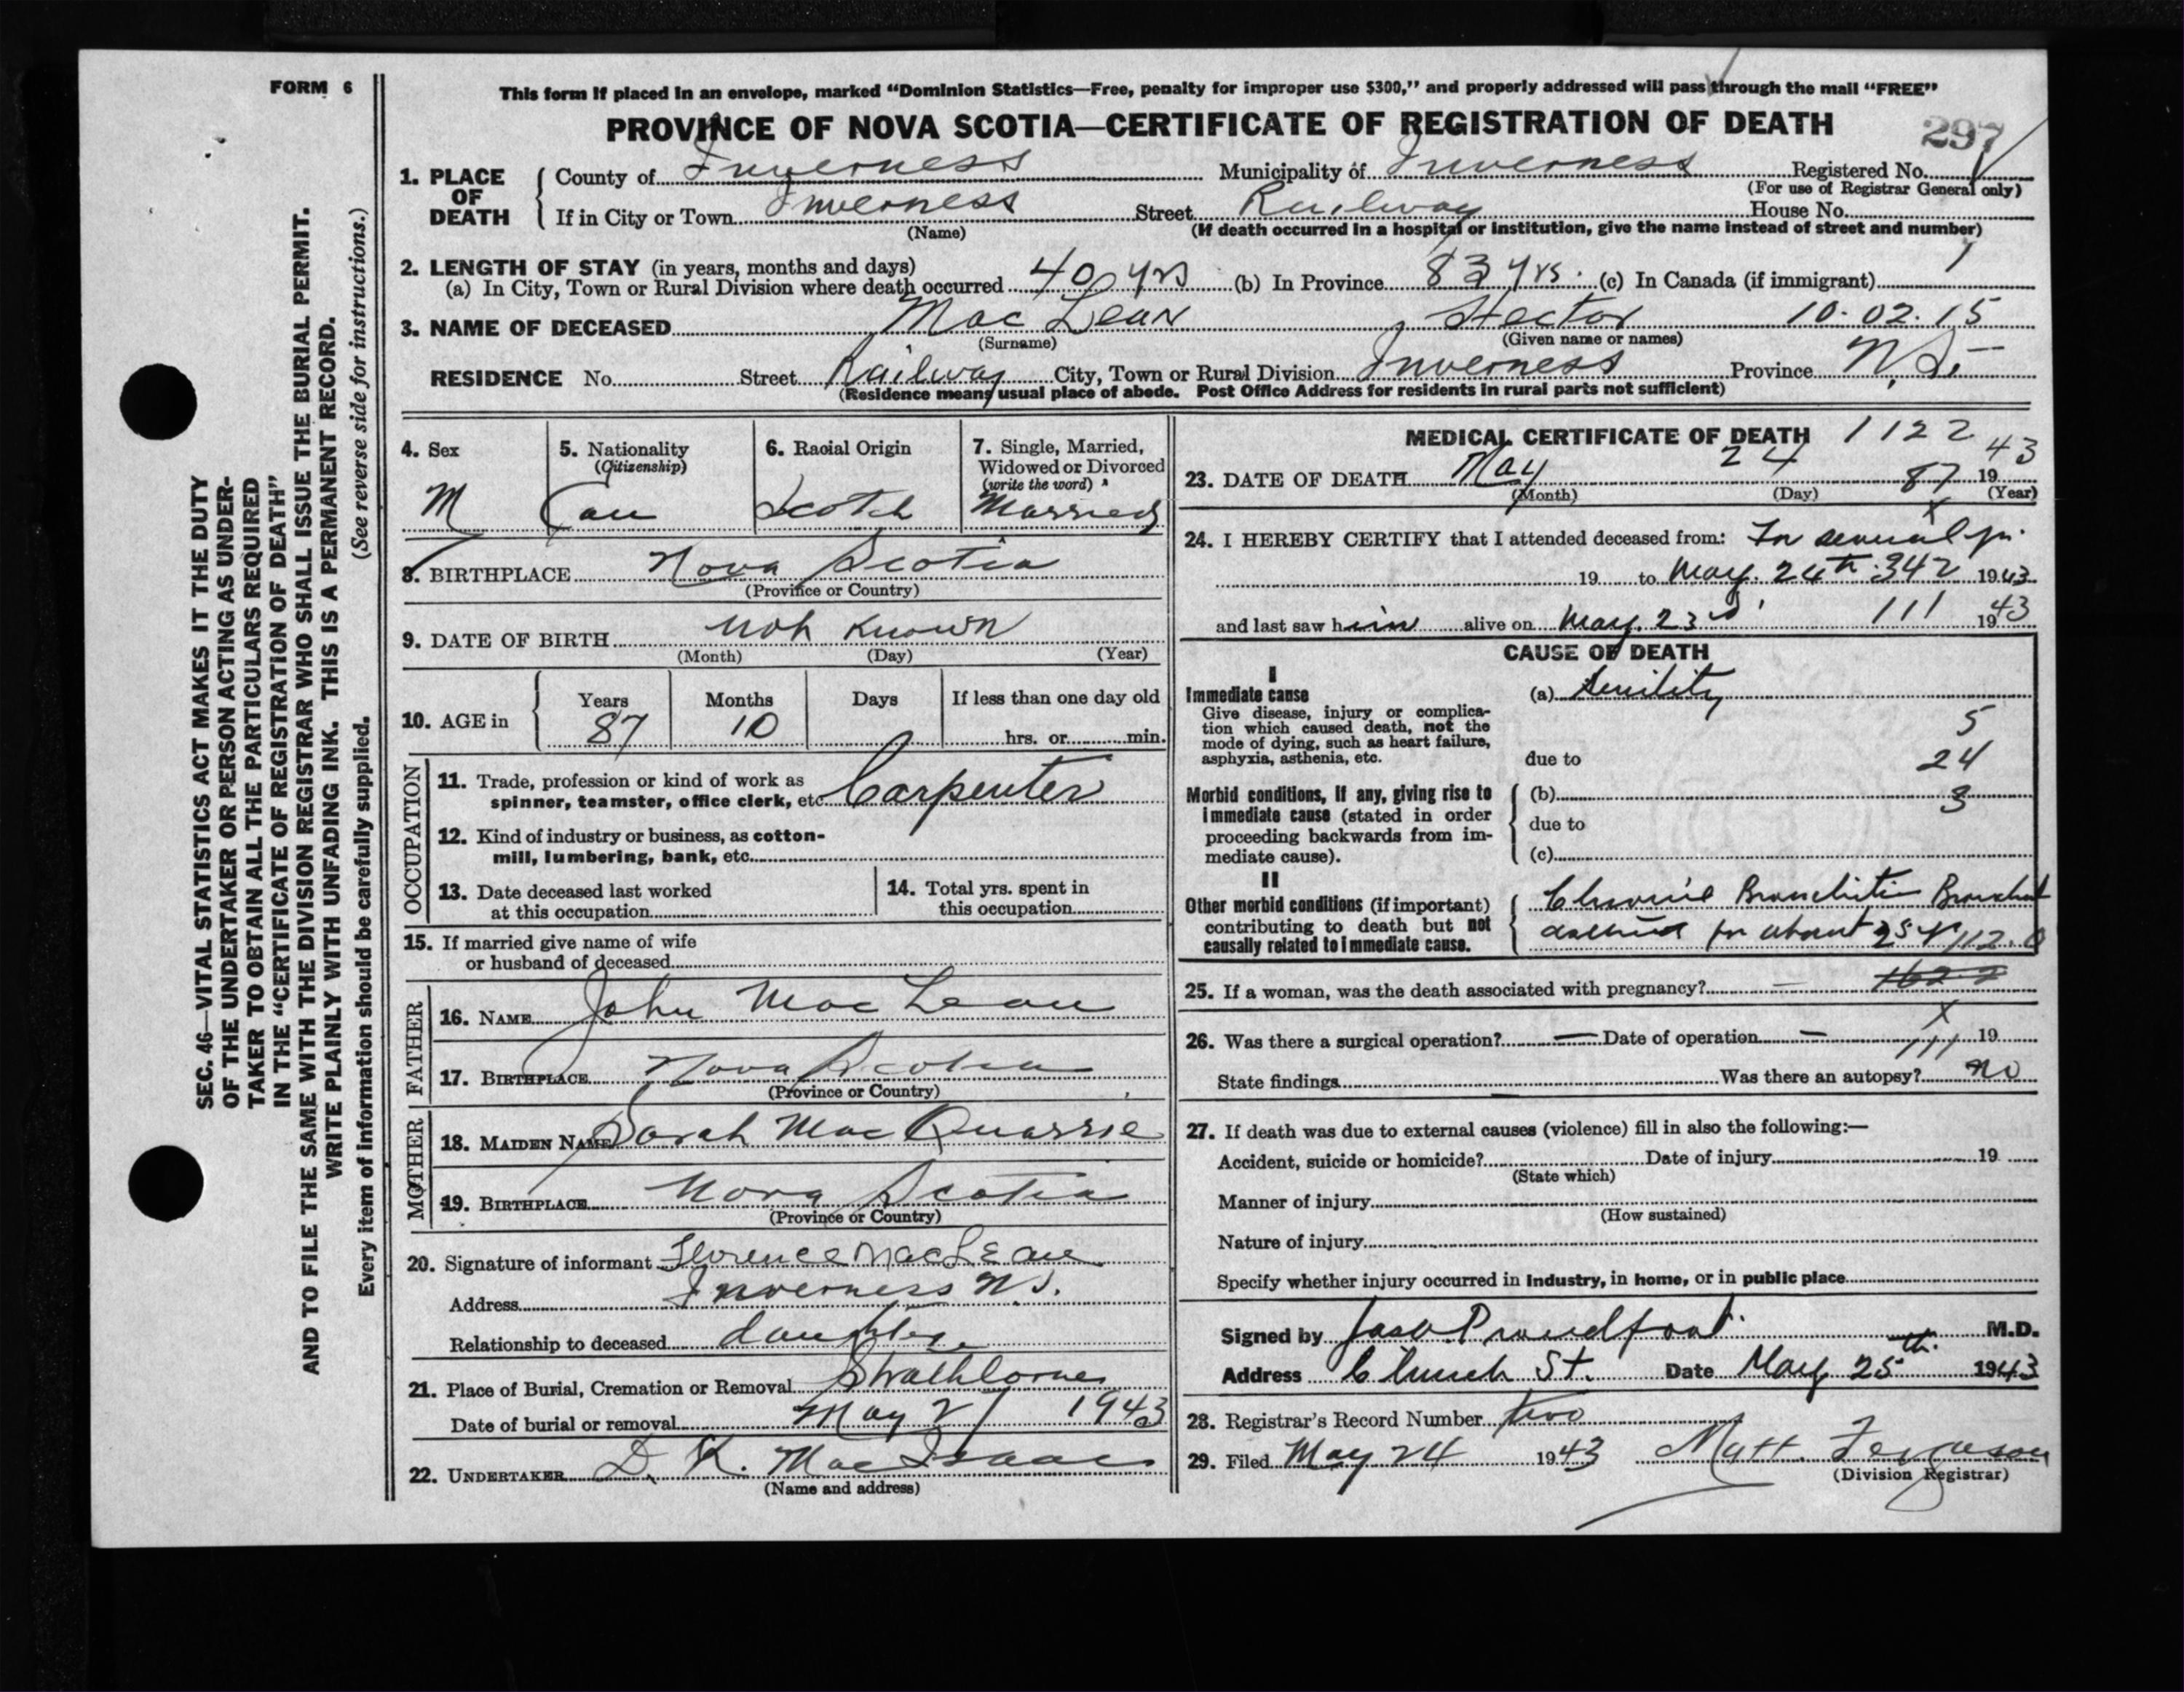 FORM 6
This form if placed in an envelope, marked "Dominion Statistics—Free, penalty for improper use $300," and properly addressed will pass through the mail "FREE"
PROVINCE OF NOVA SCOTIA—CERTIFICATE OF REGISTRATION OF DEATH
297
1. PLACE OF DEATH
County of Inverness Municipality of Inverness Registered No.
(For use of Registrar General only)
If in City or Town Inverness Street Railway House No.
(Name) (If death occurred in a hospital or institution, give the name instead of street and number)
2. LENGTH OF STAY (in years, months and days)
(a) In City, Town or Rural Division where death occurred 40 yrs (b) In Province 83 yrs. (c) In Canada (if immigrant) 1
3. NAME OF DECEASED Mac Lean Hector 10-02.15
(Surname) (Given name or names)
RESIDENCE No. Street Railway City, Town or Rural Division Inverness Province N.S.
(Residence means usual place of abode. Post Office Address for residents in rural parts not sufficient)
4. Sex
M
5. Nationality
(Citizenship)
Can
6. Racial Origin
Scotch
7. Single, Married,
Widowed or Divorced
(write the word)
Married
8. BIRTHPLACE Nova Scotia
(Province or Country)
9. DATE OF BIRTH not known
(Month) (Day) (Year)
10. AGE in
Years Months Days If less than one day old
87 10 hrs. or min.
OCCUPATION
11. Trade, profession or kind of work as
spinner, teamster, office clerk, etc. Carpenter
12. Kind of industry or business, as cotton-
mill, lumbering, bank, etc.
13. Date deceased last worked
at this occupation
14. Total yrs. spent in
this occupation
15. If married give name of wife
or husband of deceased
FATHER
16. NAME John Mac Lean
17. BIRTHPLACE Nova Scotia
(Province or Country)
MOTHER
18. MAIDEN NAME Sarah Mac Quarrie
19. BIRTHPLACE Nova Scotia
(Province or Country)
20. Signature of informant Florence MacLean
Address Inverness N.S.
Relationship to deceased daughter
21. Place of Burial, Cremation or Removal Strathlorne
Date of burial or removal May 27 1943
22. UNDERTAKER D. K. MacIsaac
(Name and address)
MEDICAL CERTIFICATE OF DEATH 1122
23. DATE OF DEATH May 24 87 19 43
(Month) (Day) (Year)
24. I HEREBY CERTIFY that I attended deceased from: For several yrs.
19 to May. 24th. 342 1943
and last saw him alive on May. 23rd 111 1943
CAUSE OF DEATH
I
Immediate cause
Give disease, injury or complica-
tion which caused death, not the
mode of dying, such as heart failure,
asphyxia, asthenia, etc.
(a) Senility
5
due to 24
Morbid conditions, if any, giving rise to
immediate cause (stated in order
proceeding backwards from im-
mediate cause).
(b) 3
due to
(c)
II
Other morbid conditions (if important)
contributing to death but not
causally related to immediate cause.
Chronic Bronchitis Bronchial
asthma for about 25 y 112.0
25. If a woman, was the death associated with pregnancy? — 162-2
26. Was there a surgical operation? — Date of operation — X 19
111
State findings Was there an autopsy? no
27. If death was due to external causes (violence) fill in also the following:—
Accident, suicide or homicide? Date of injury 19
(State which)
Manner of injury
(How sustained)
Nature of injury
Specify whether injury occurred in Industry, in home, or in public place
Signed by Jas. Proudfoot. M.D.
Address Church St. Date May 25th. 1943
28. Registrar's Record Number two
29. Filed May 24 1943 Matt. Ferguson
(Division Registrar)
SEC. 46—VITAL STATISTICS ACT MAKES IT THE DUTY
OF THE UNDERTAKER OR PERSON ACTING AS UNDER-
TAKER TO OBTAIN ALL THE PARTICULARS REQUIRED
IN THE "CERTIFICATE OF REGISTRATION OF DEATH"
AND TO FILE THE SAME WITH THE DIVISION REGISTRAR WHO SHALL ISSUE THE BURIAL PERMIT.
WRITE PLAINLY WITH UNFADING INK. THIS IS A PERMANENT RECORD.
Every item of information should be carefully supplied. (See reverse side for instructions.)